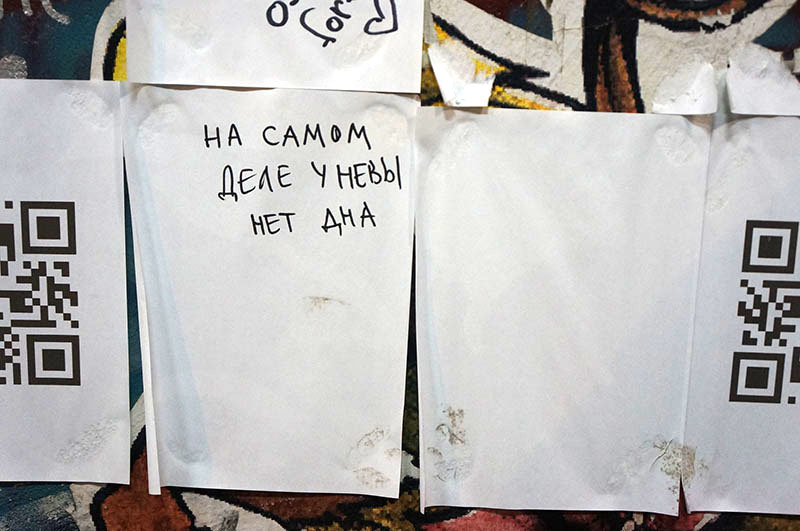 НА САМОМ
ДЕЛЕ У НЕВЫ
НЕТ ДНА